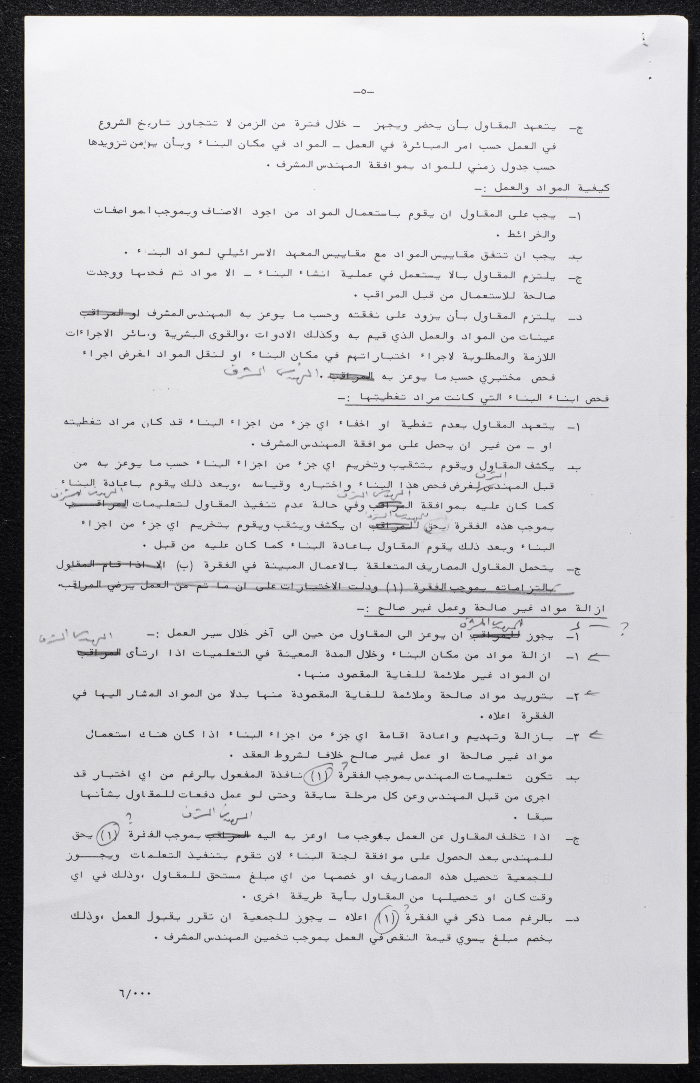 -٥-
ج- يتعهد المقاول بأن يحضر ويجهز - خلال فترة من الزمن لا تتجاوز تاريخ الشروع
في العمل حسب امر المباثرة في العمل - المواد في مكان البناء وبأن يؤمن تزويدها
حسب جدول زمني للمواد بموافقة المهندس المشرف .
كيفية المواد والعمل :-
١- يجب على المقاول ان يقوم باستعمال المواد من اجود الاصناف وبموجب المواصفات
والخرائط .
ب- يجب ان تتفق مقاييس المواد مع مقاييس المعهد الاسرائيلي لمواد البناء .
ج- يلتزم المقاول بالا يستعمل في عملية انشاء البناء - الا مواد تم فحصها ووجدت
صالحة للاستعمال من قبل المراقب .
د- يلتزم المقاول بأن يزود على نفقته وحسب ما يوعز به المهندس المشرف او المراقب
عينات من المواد والعمل الذي قيم به وكذلك الادوات ،والقوى البشرية وسائر الاجراءات
اللازمة والمطلوبة لاجراء اختباراتهم في مكان البناء او لنقل المواد لغرض اجراء
فحص مختبري حسب ما يوعز به المراقب . المهندس المشرف
فحص ابناء البناء التي كانت مراد تغطيتها :-
١- يتعهد المقاول بعدم تغطية او اخفاء اي جزء من اجزاء البناء قد كان مراد تغطيته
او - من غير ان يحصل على موافقة المهندس المشرف .
ب- يكشف المقاول ويقوم بتثقيب وتخريم اي جزء من اجزاء البناء حسب ما يوعز به من
المشرف
قبل المهندس لغرض فحص هذا البناء واختباره وقياسه ،وبعد ذلك يقوم باعادة البناء
المهندس المشرف المهندس المشرف
كما كان عليه بموافقة المراقب وفي حالة عدم تنفيذ المقاول لتعليمات المراقب
للمهندس المشرف
بموجب هذه الفقرة يحق للمراقب ان يكشف ويثقب ويقوم بتخريم اي جزء من اجزاء
البناء وبعد ذلك يقوم المقاول باعادة البناء كما كان عليه من قبل .
ج- يتحمل المقاول المصاريف المتعلقة بالاعمال المبينة في الفقرة (ب) الا اذا قام المقاول
بالتزاماته بموجب الفقرة (١) ودلت الاختبارات على ان ما تم من العمل يرضي المراقب.
ازالة مواد غير صالحة وعمل غير صالح :-
؟ المهندس المشرف المهندس المشرف
١- يجوز للمراقب ان يوعز الى المقاول من حين الى آخر خلال سير العمل :-
١- ازالة مواد من مكان البناء وخلال المدة المعينة في التعلميات اذا ارتأى المراقب
ان المواد غير ملائمة للغاية المقصود منها.
٢- بتوريد مواد صالحة وملائمة للغاية المقصودة منها بدلا من المواد المشار اليها في
الفقرة اعلاه.
٣- بازالة وتهديم واعادة اقامة اي جزء من اجزاء البناء اذا كان هناك استعمال
مواد غير صالحة او عمل غير صالح خلافا لشروط العقد .
ب- تكون تعليمات المهندس بموجب الفقرة (١) نافذة المفعول بالرغم من اي اختبار قد
اجرى من قبل المهندس وعن كل مرحلة سابقة وحتى لو عمل دفعات للمقاول بشأنها
سبقا .
المهندس المشرف ؟
ج- اذا تخلف المقاول عن العمل بموجب ما اوعز به اليه المراقب بموجب الفقرة (١) يحق
للمهندس بعد الحصول على موافقة لجنة البناء لان تقوم بتنفيذ التعلمات ويجـــوز
للجمعية تحصيل هذه المصاريف او خصمها من اي مبلغ مستحق للمقاول ،وذلك في اي
وقت كان او تحصيلها من المقاول بأية طريقة اخرى .
د- بالرغم مما ذكر في الفقرة (١) اعلاه - يجوز للجمعية ان تقرر بقبول العمل ،وذلك
بخصم مبلغ يسوي قيمة النقص في العمل بموجب تخمين المهندس المشرف .
٦/٠٠٠